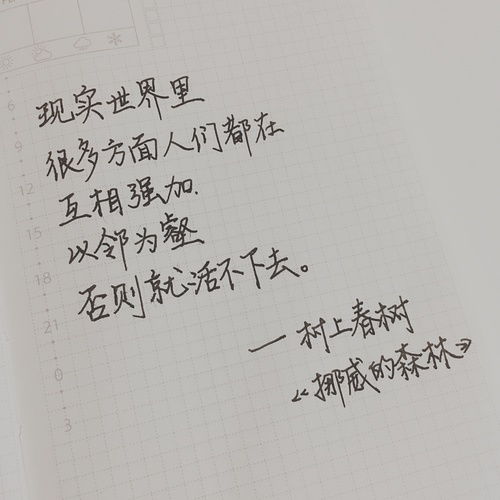 6
9
12
15
18
21
0
3
现实世界里
很多方面人们都在
互相强加.
以邻为壑
否则就活不下去。
— 树上春树
《挪威的森林》